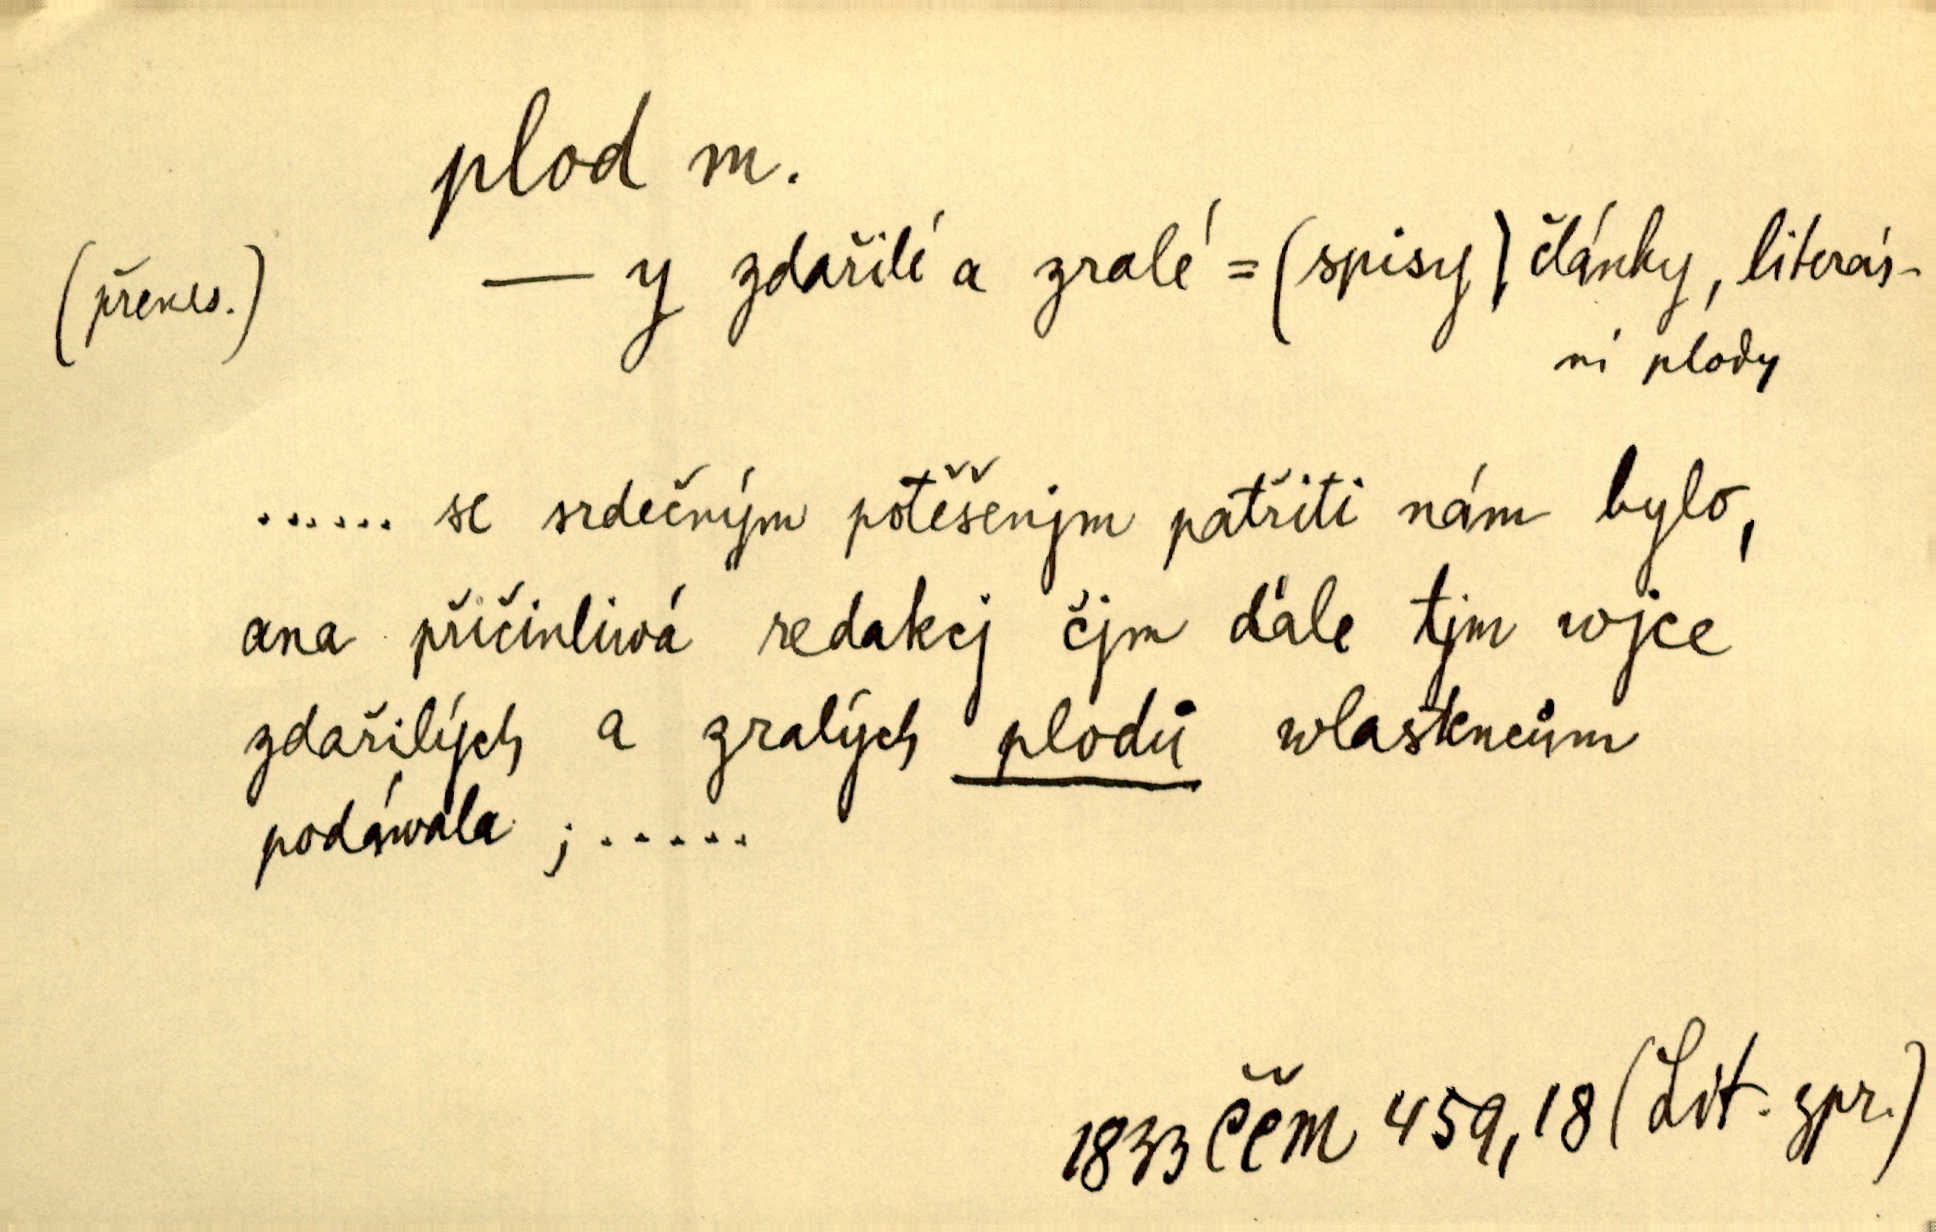 plod m.
(přenes.) — y zdařilé a zralé = (spisy) články, literár-
ní plody
...... se srdečným potěšenjm patřiti nám bylo,
ana přičinliwá redakcj čjm dále tjm wjce
zdařilých a zralých plodů wlastencům
podáwala ; .....
1833 ččm 459, 18 (Lit. zpr.)